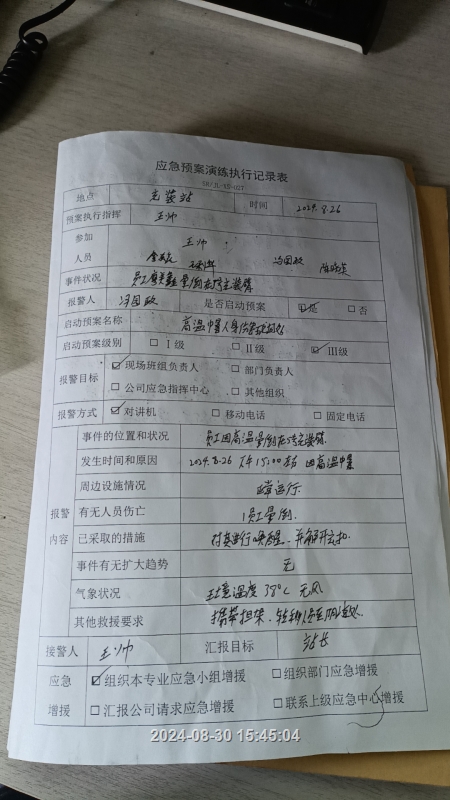 应急预案演练执行记录表
地点 充装站 时间 2024.8.26
预案执行指挥 王帅
参加人员 王帅 冯国政
事件状况
报警人 冯国政 是否启动预案 ☑是 □否
启动预案名称 高温中暑人身伤害
启动预案级别 □Ⅰ级 □Ⅱ级 ☑Ⅲ级
报警目标 ☑现场班组负责人 □部门负责人
□公司应急指挥中心 □其他组织
报警方式 ☑对讲机 □移动电话 □固定电话
报警内容
事件的位置和状况 员工因高温晕倒在
发生时间和原因 2024.8.26 下午15:00左右 因高温中暑
周边设施情况 正常运行
有无人员伤亡 1员工晕倒.
已采取的措施 对其进行唤醒,并解开衣扣
事件有无扩大趋势 无
气象状况 环境温度 38℃ 无风
其他救援要求 携带担架,
接警人 王帅 汇报目标 站长
应急增援 ☑组织本专业应急小组增援 □组织部门应急增援
□汇报公司请求应急增援 □联系上级应急中心增援
2024-08-30 15:45:04